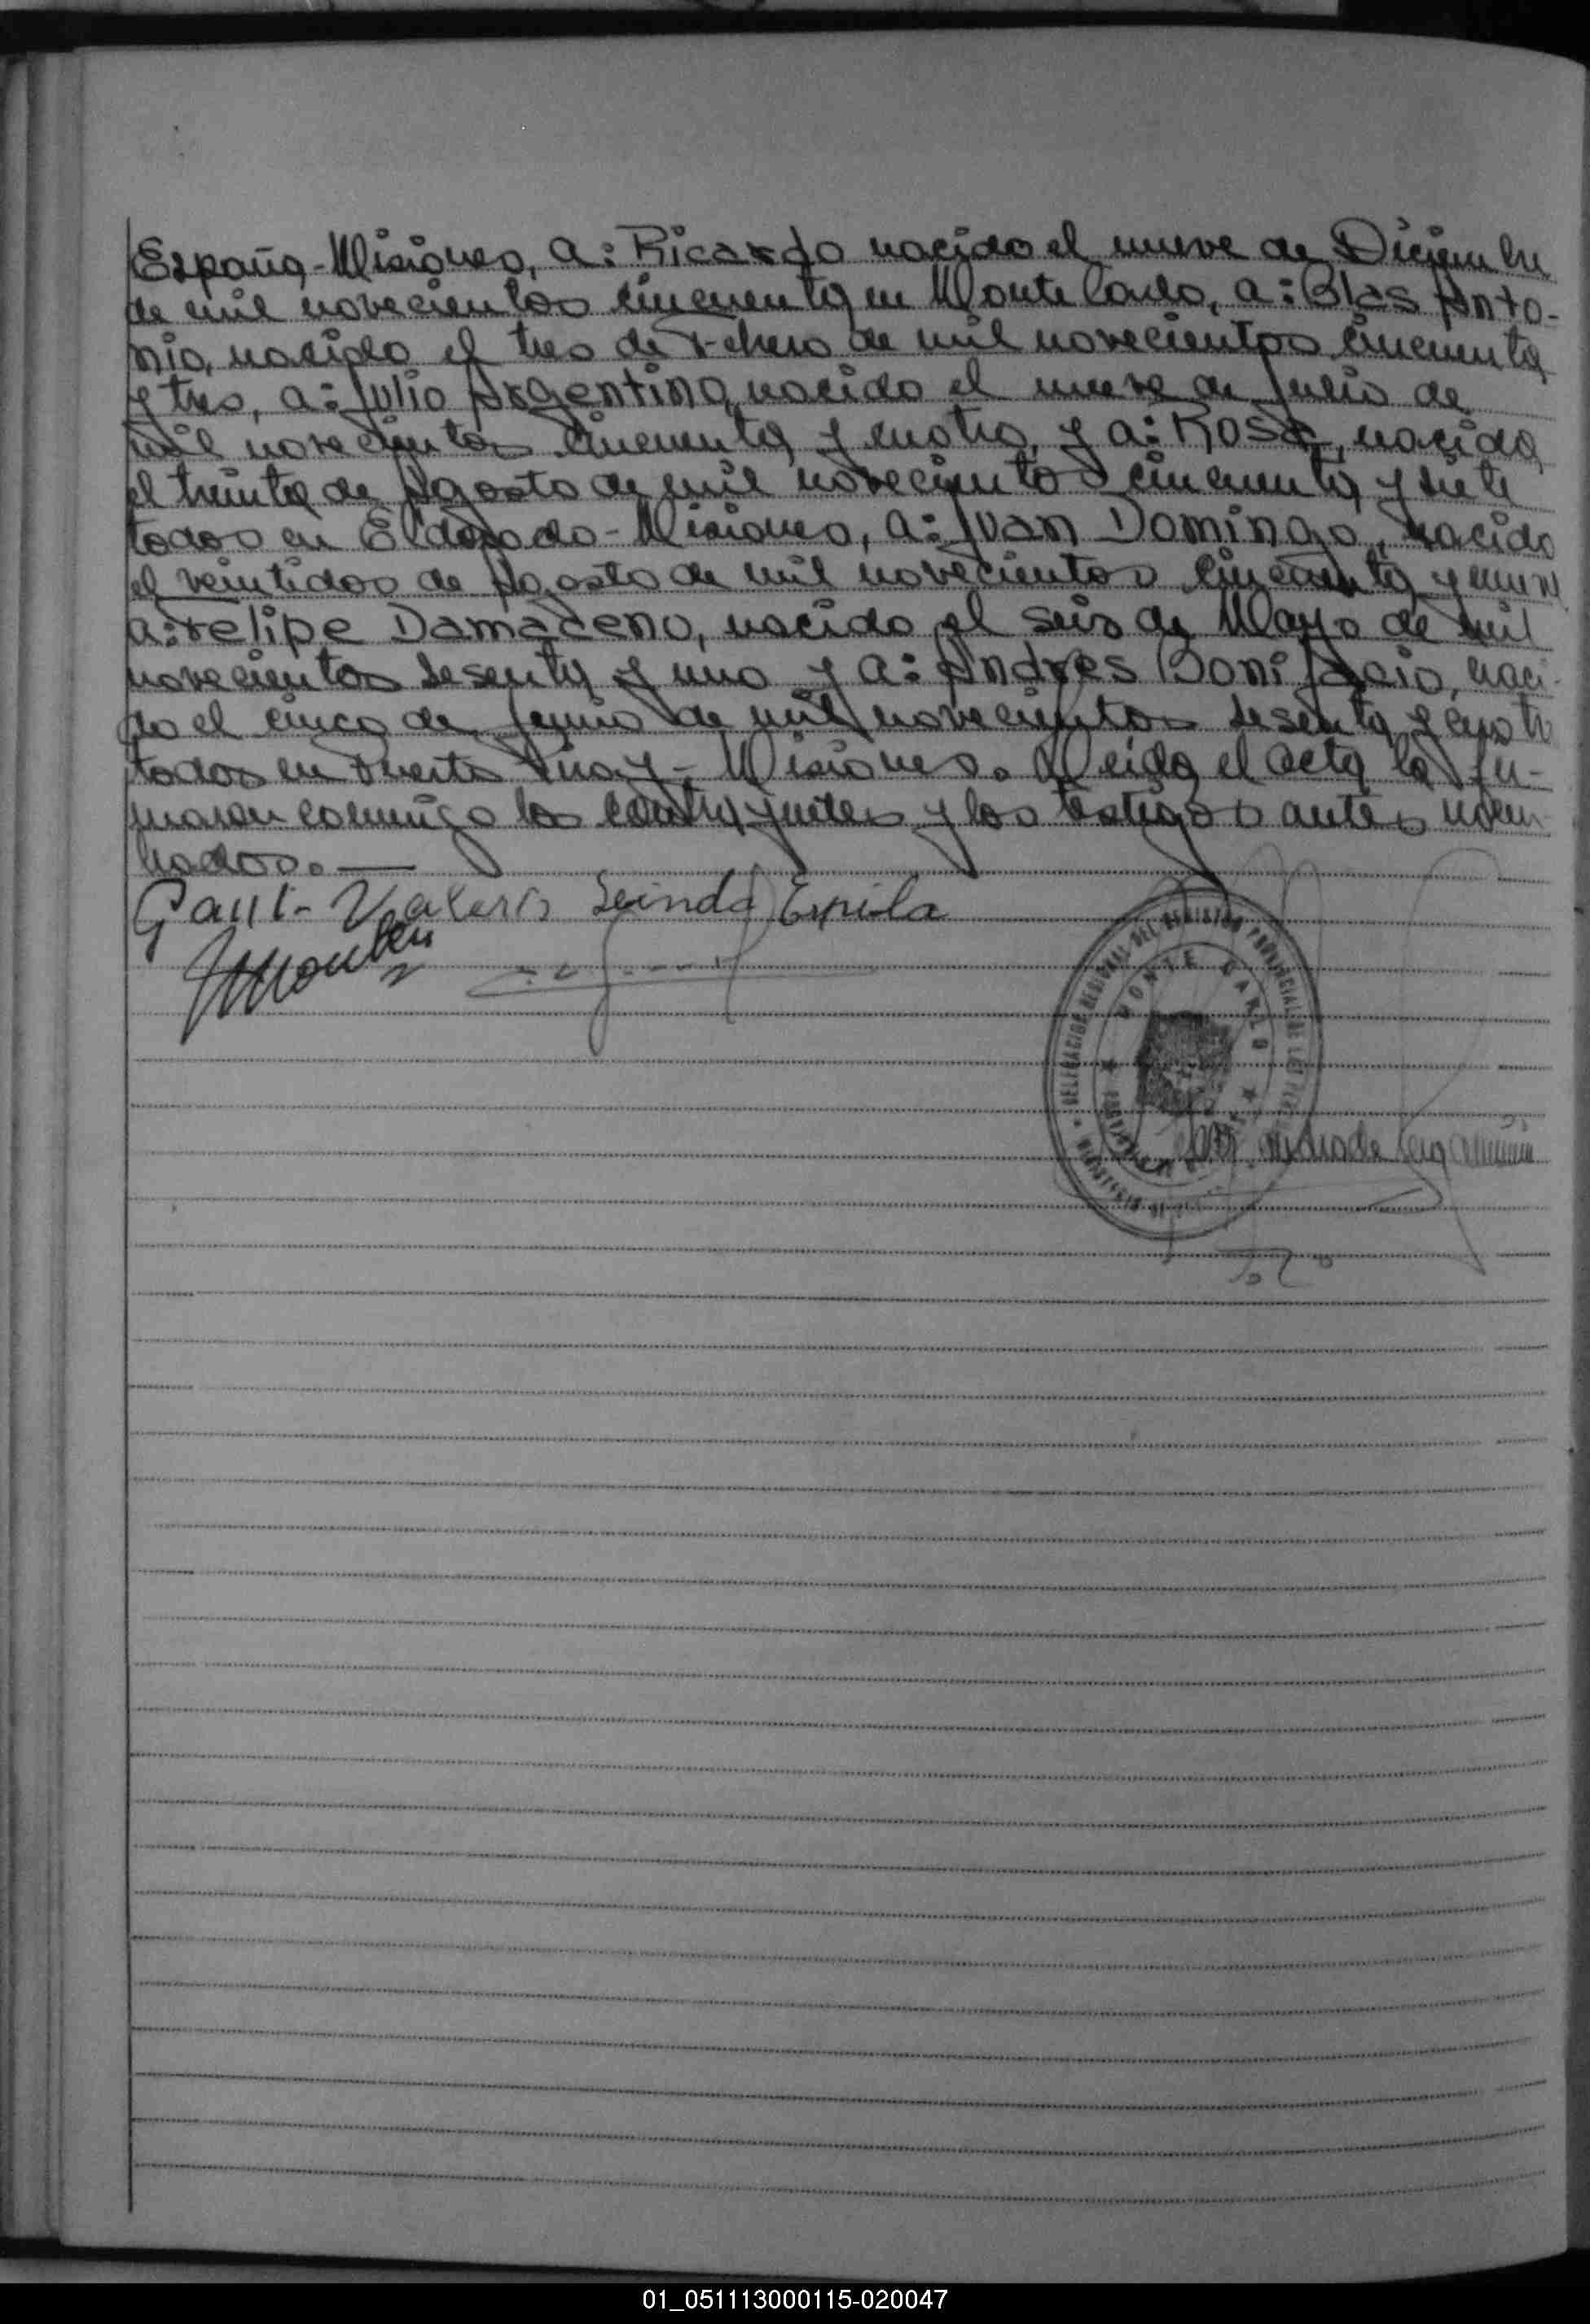 España-Misiones, a: Ricardo nacido el nueve de Diciembre
de mil novecientos cincuenta en Monte Carlo, a: Blas Anto-
nio, nacido el tres de Febrero de mil novecientos cincuenta
y tres, a: Julio Argentino, nacido el nueve de Julio de
mil novecientos cincuenta y cuatro, y a: Rosa, nacida
el treinta de Agosto de mil novecientos cincuenta y siete
todos en Eldorado-Misiones, a: Juan Domingo, nacido
el veintidos de Agosto de mil novecientos cincuenta y nueve
a: Felipe Damaceno, nacido el seis de Mayo de mil
novecientos sesenta y uno y a: Andres Bonifacio, naci-
do el cinco de Junio de mil novecientos sesenta y cuatro
todos en Puerto Piray-Misiones. Leida el acta la fir-
maron conmigo los contrayentes y los testigos antes nom
brados.—
Valerio
DELEGACION REGIONAL DEL REGISTRO PROVINCIAL DE LAS
MONTE CARLO
MISIONES